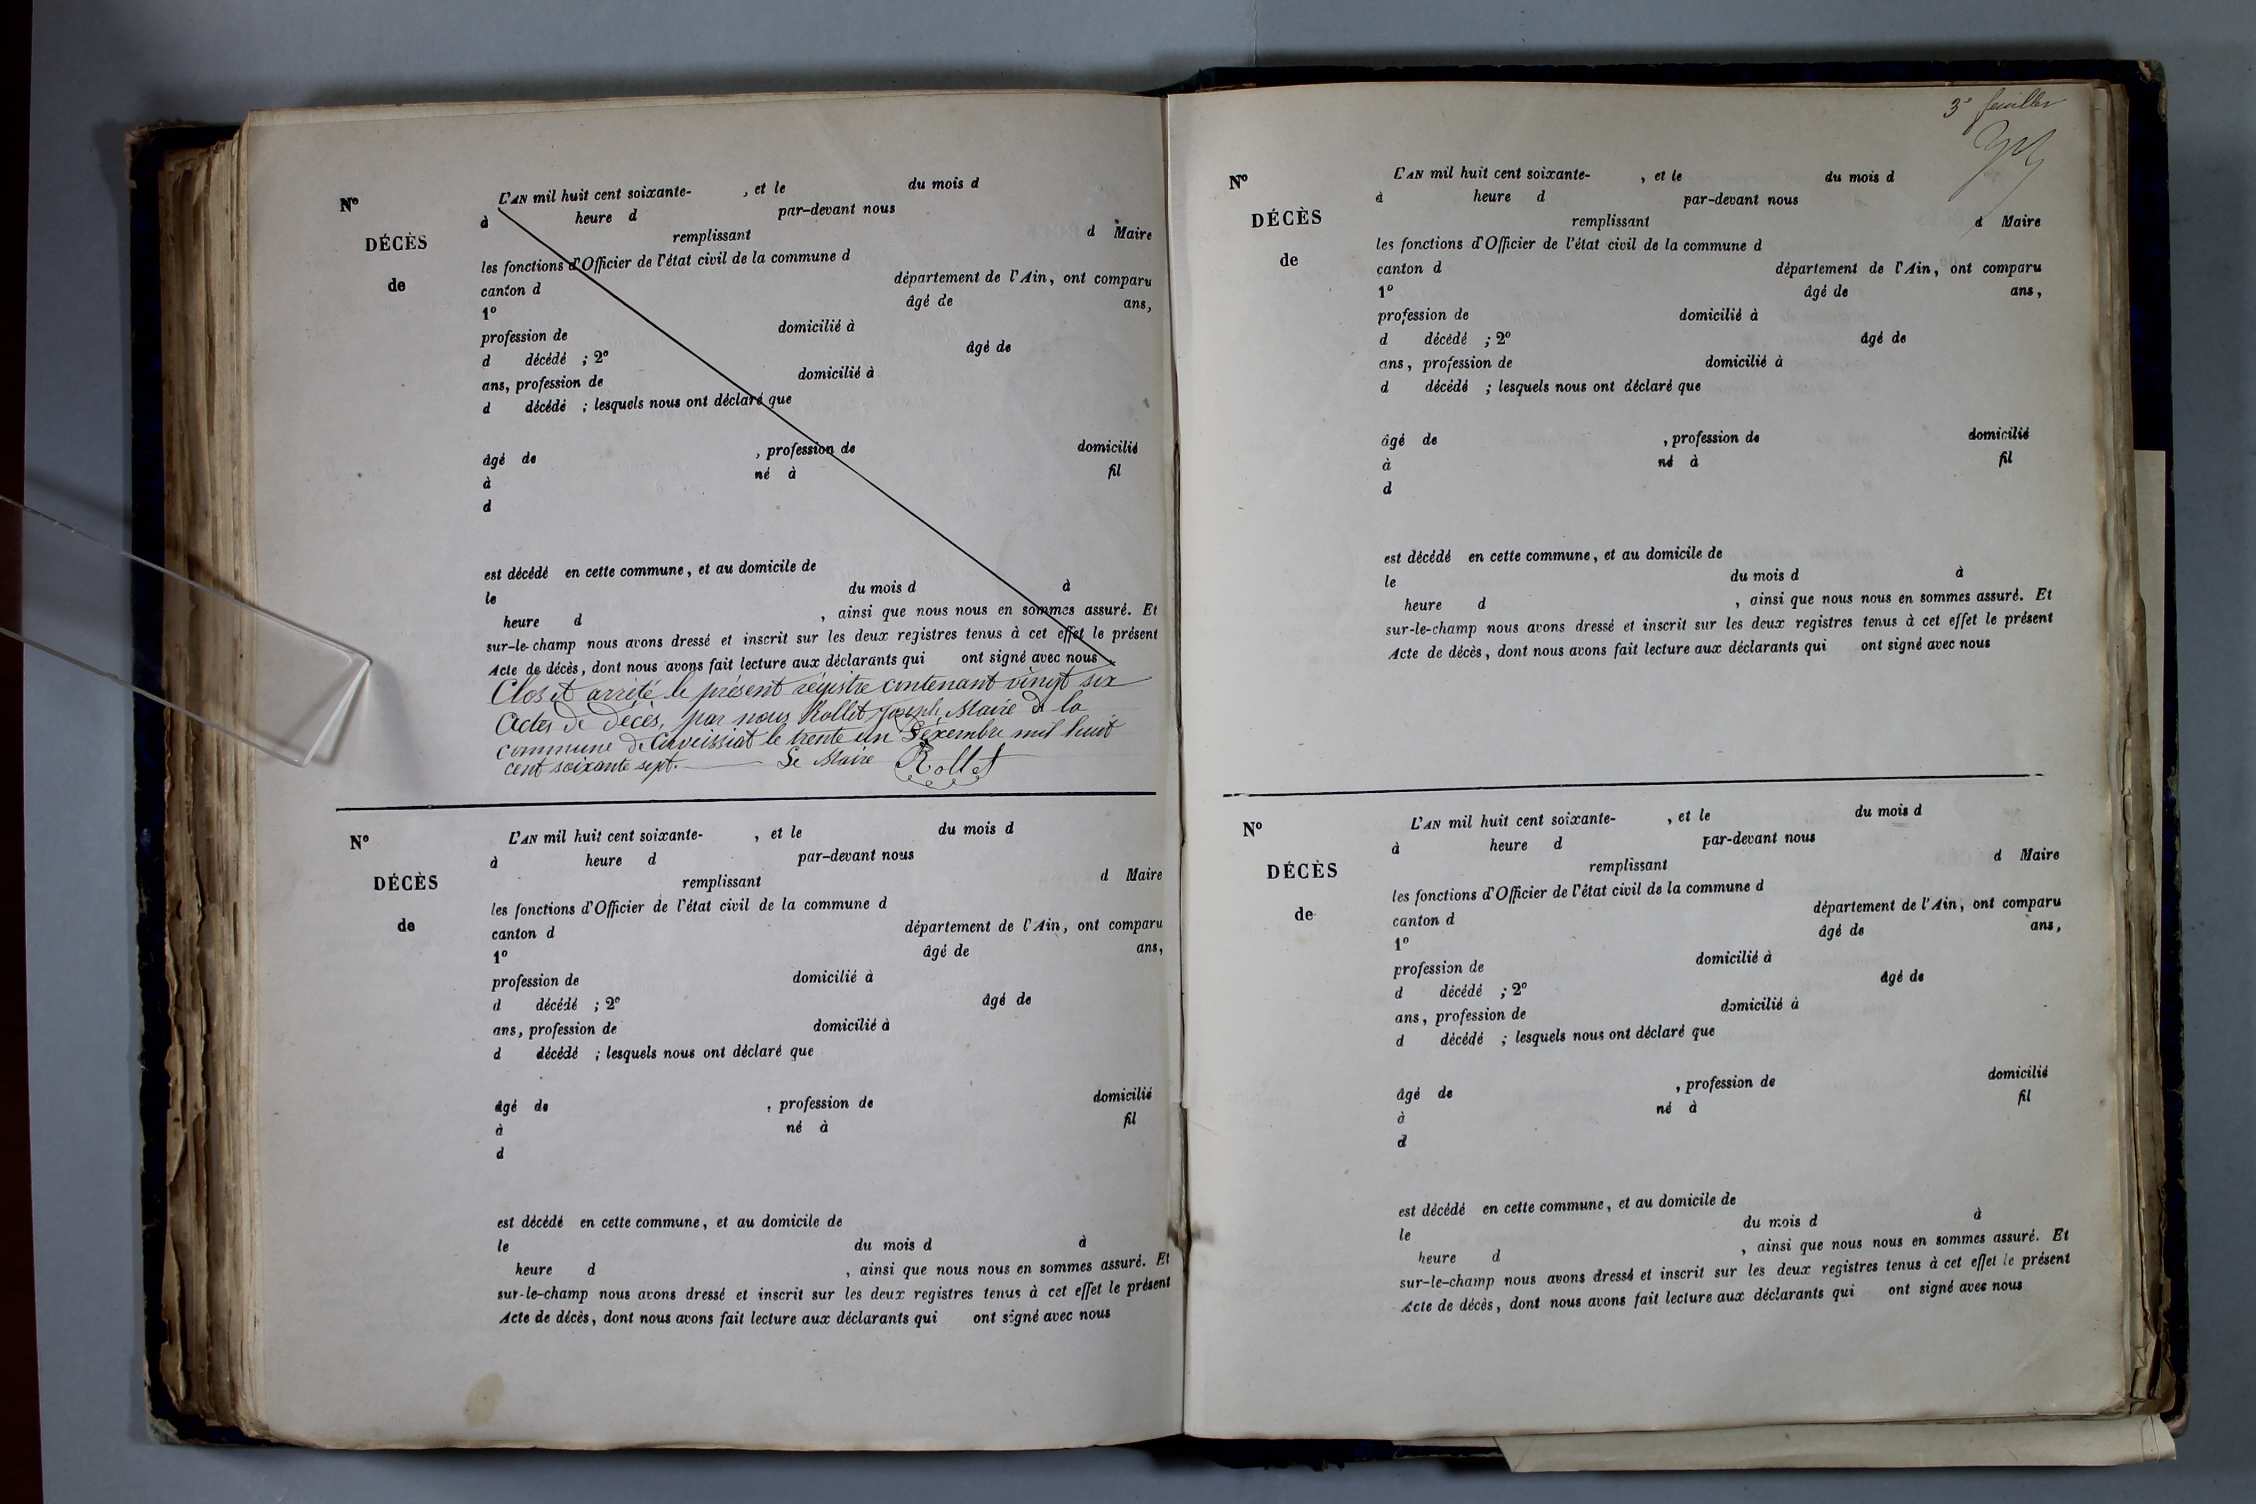 N°
DÉCÈS
de
L'AN mil huit cent soixante- , et le du mois d
à heure d par-devant nous
remplissant d Maire
les fonctions d'Officier de l'état civil de la commune d
canton d département de l'Ain, ont comparu
1° âgé de ans,
profession de domicilié à
d décédé ; 2° âgé de
ans, profession de domicilié à
d décédé ; lesquels nous ont déclaré que
âgé de , profession de domicilié
à né à fil
d
est décédé en cette commune, et au domicile de
le du mois d à
heure d , ainsi que nous nous en sommes assuré. Et
sur-le-champ nous avons dressé et inscrit sur les deux registres tenus à cet effet le présent
Acte de décès, dont nous avons fait lecture aux déclarants qui ont signé avec nous
Clos et arrêté le présent régistre contenant vingt six
Actes de Décès, par nous Rollet Joseph, Maire de la
commune de Corveissiat le trente un Décembre mil huit
cent soixante sept. Le Maire Rollet
N°
DÉCÈS
de
L'AN mil huit cent soixante- , et le du mois d
à heure d par-devant nous
remplissant d Maire
les fonctions d'Officier de l'état civil de la commune d
canton d département de l'Ain, ont comparu
1° âgé de ans,
profession de domicilié à
d décédé ; 2° âgé de
ans, profession de domicilié à
d décédé ; lesquels nous ont déclaré que
âgé de , profession de domicilié
à né à fil
d
est décédé en cette commune, et au domicile de
le du mois d à
heure d , ainsi que nous nous en sommes assuré. Et
sur-le-champ nous avons dressé et inscrit sur les deux registres tenus à cet effet le présent
Acte de décès, dont nous avons fait lecture aux déclarants qui ont signé avec nous
3e feuillet
N°
DÉCÈS
de
L'AN mil huit cent soixante- , et le du mois d
à heure d par-devant nous
remplissant d Maire
les fonctions d'Officier de l'état civil de la commune d
canton d département de l'Ain, ont comparu
1° âgé de ans,
profession de domicilié à
d décédé ; 2° âgé de
ans, profession de domicilié à
d décédé ; lesquels nous ont déclaré que
âgé de , profession de domicilié
à né à fil
d
est décédé en cette commune, et au domicile de
le du mois d à
heure d , ainsi que nous nous en sommes assuré. Et
sur-le-champ nous avons dressé et inscrit sur les deux registres tenus à cet effet le présent
Acte de décès, dont nous avons fait lecture aux déclarants qui ont signé avec nous
N°
DÉCÈS
de
L'AN mil huit cent soixante- , et le du mois d
à heure d par-devant nous
remplissant d Maire
les fonctions d'Officier de l'état civil de la commune d
canton d département de l'Ain, ont comparu
1° âgé de ans,
profession de domicilié à
d décédé ; 2° âgé de
ans, profession de domicilié à
d décédé ; lesquels nous ont déclaré que
âgé de , profession de domicilié
à né à fil
d
est décédé en cette commune, et au domicile de
le du mois d à
heure d , ainsi que nous nous en sommes assuré. Et
sur-le-champ nous avons dressé et inscrit sur les deux registres tenus à cet effet le présent
Acte de décès, dont nous avons fait lecture aux déclarants qui ont signé avec nous